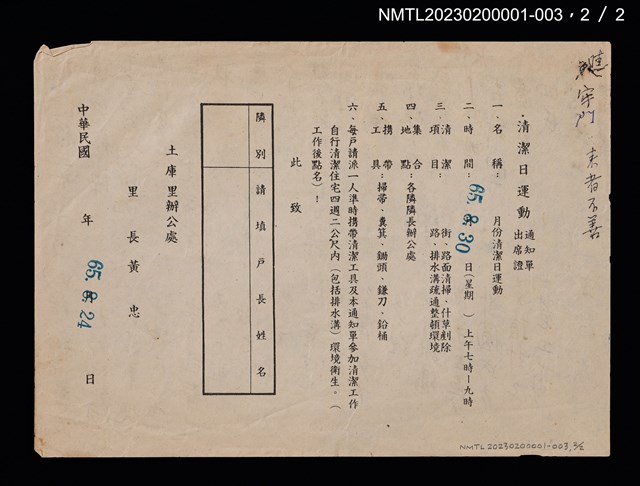 NMTL20230200001-003，2／2
牢門
來者不善
．清潔日運動 通知單 出席證
一、名稱： 月份清潔日運動
二、時間：65.8.30日(星期 ) 上午七時－九時
三、清潔項目：街、路面清掃、什草剷除
路、排水溝疏通整頓環境
四、集合地點：各隣隣長辦公處
五、携帶工具：掃帚、糞箕、鋤頭、鎌刀、鉛桶
六、每戶請派一人準時携帶清潔工具及本通知單參加清潔工作
自行清潔住宅四週二公尺內（包括排水溝）環境衛生。（
工作後點名）！
此致
隣別 請填戶長姓名
土庫里辦公處
里長 黃忠
中華民國 年 65.8.24 日
NMTL20230200001-003,2/2